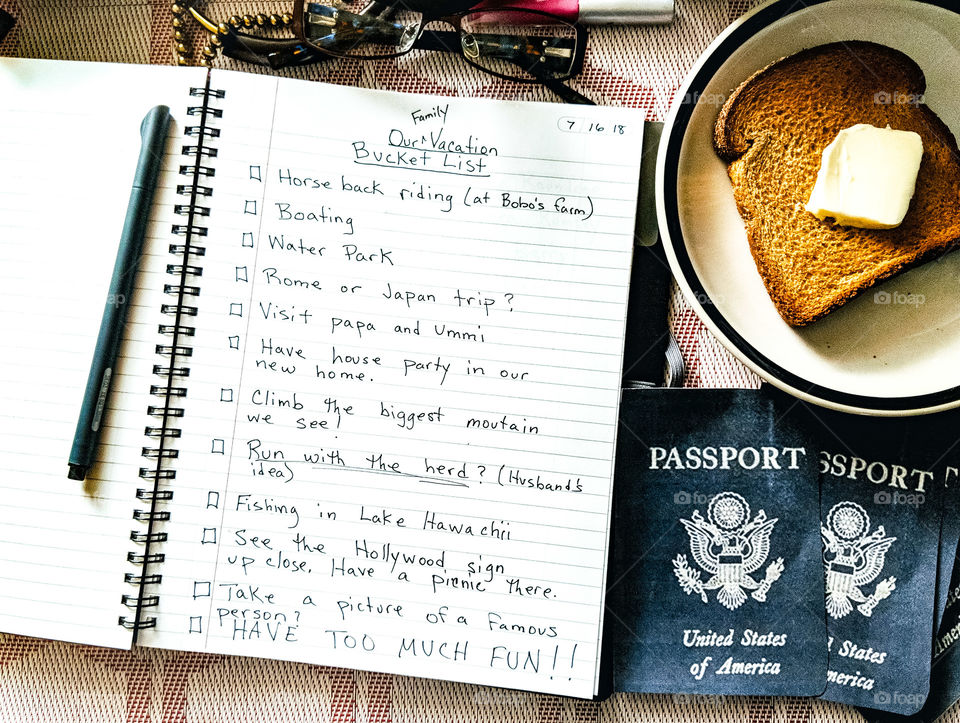 Family
7 16 18
Our ^ Vacation
Bucket List
Horse back riding (at Bobo's farm)
Boating
Water Park
Rome or Japan trip?
Visit papa and ummi
Have house party in our
new home.
Climb the biggest moutain
we see!
Run with the herd? (Husband's
idea)
Fishing in Lake Hawachii
See the Hollywood sign
up close. Have a picnic there.
Take a picture of a famous
person?
HAVE TOO MUCH FUN!!
PASSPORT
United States
of America
SSPORT
States
merica
foap
foap
foap
foap
foap
foap
foap